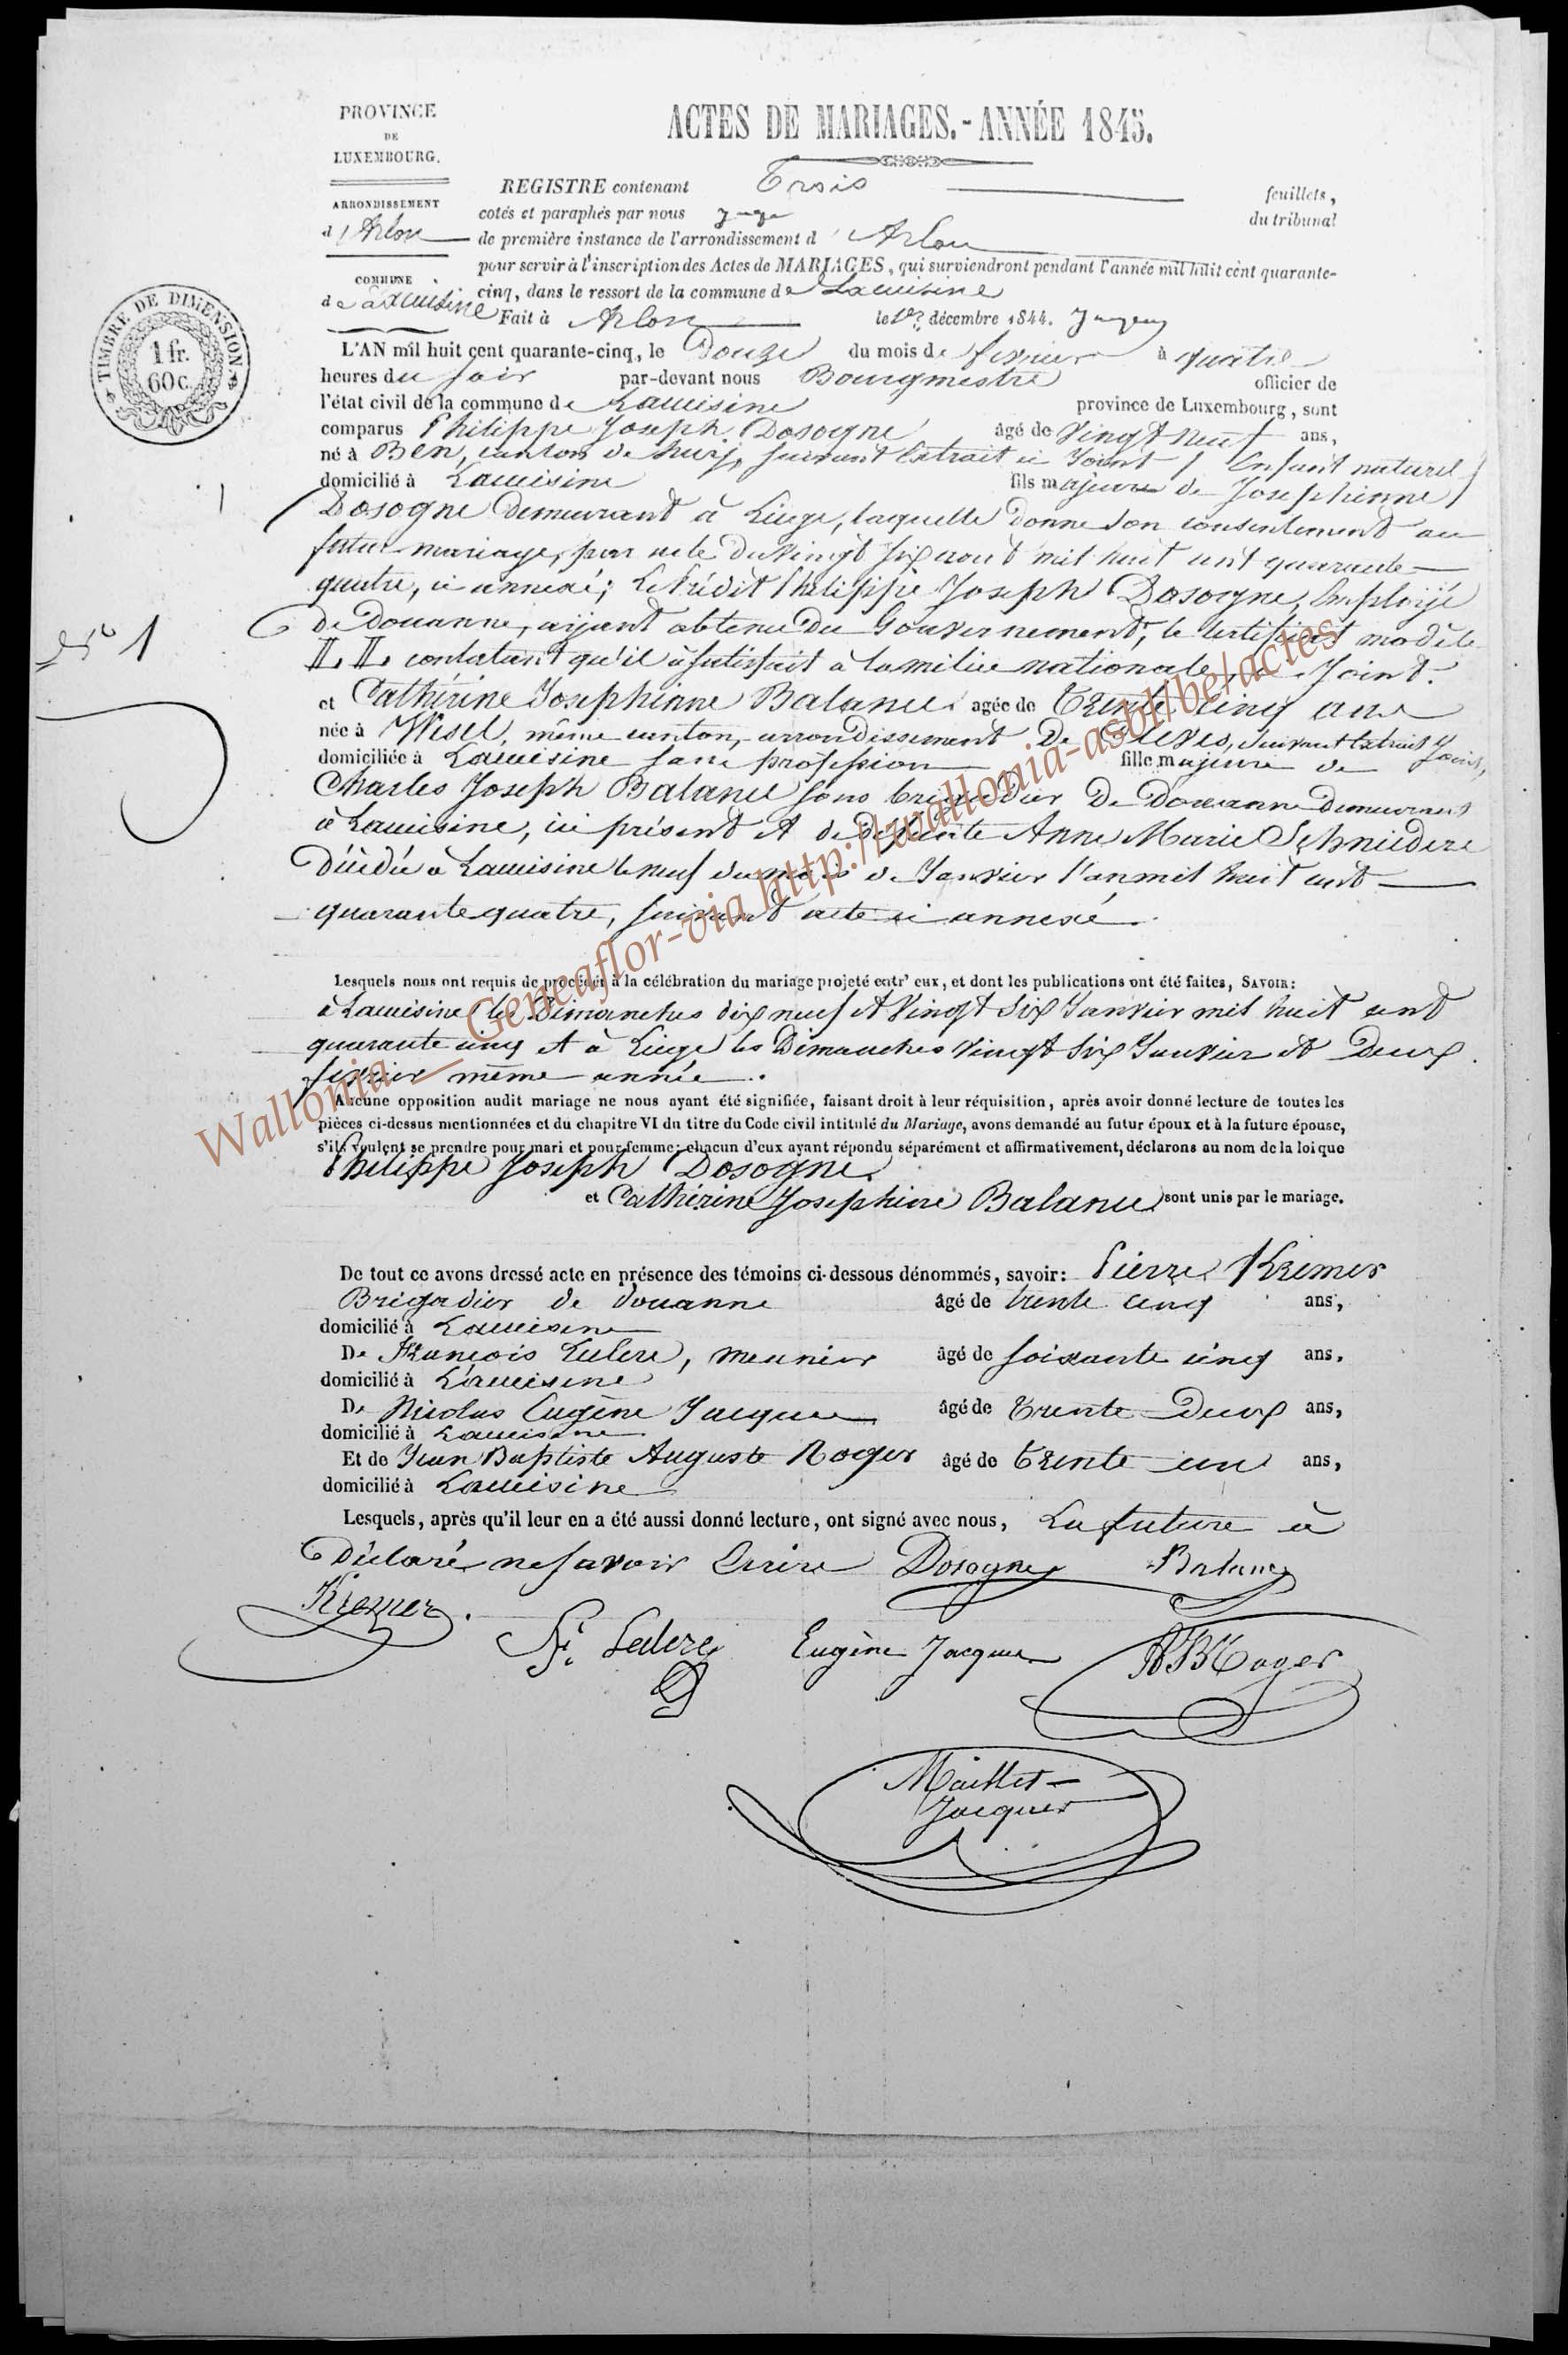 PROVINCE
DE
LUXEMBOURG.
ARRONDISSEMENT
d'Arlon
COMMUNE
de Lacuisine
TIMBRE DE DIMENSION
1 fr.
60 c.
ACTES DE MARIAGES.-ANNÉE 1845.
REGISTRE contenant Trois feuillets,
cotés et paraphés par nous Juge du tribunal
de première instance de l'arrondissement d'Arlon
pour servir à l'inscription des Actes de MARIAGES, qui surviendront pendant l'année mil huit cent quarante-
cinq, dans le ressort de la commune de Lacuisine
Fait à Arlon le 1er décembre 1844.
L'AN mil huit cent quarante-cinq, le Douze du mois de fevrier à quatre
heures du soir par-devant nous Bourgmestre officier de
l'état civil de la commune de Lacuisine province de Luxembourg, sont
comparus Philippe Joseph Dosogne âgé de Vingt neuf ans,
né à Ben, canton de huy, suivant Extrait ci Joint / Enfant naturel /
domicilié à Lacuisine fils majeure de Josephienne /
Dosogne demeurant à Liege, laquelle donne son consentement au
futur mariage, par acte du vingt six aout mil huit cent quarante-
quatre, ci annexé; Le Prédit Philippe Joseph Dosogne, Employé
N° 1
De Douanne, ayant obtenu Du Gouvernement, le certificat modèle
L. L. constatant qu'il à satisfait à la milice nationale, ci Joint.
et Cathérine Josephinne Balance agée de Trente cinq ans
née à Wesel, même canton, arrondissement De Cleves, suivant Extrait Joint,
domiciliée à Lacuisine sans profession fille majeure de
Charles Joseph Balance sous brigadier De Douanne demeurant
à Lacuisine, ici présent et de défunte Anne Marie Schneidere
Décédée à Lacuisine le neuf du mois de Janvier l'an mil huit cent
quarante quatre, suivant acte ci annexé.
Lesquels nous ont requis de procéder à la célébration du mariage projeté entr' eux, et dont les publications ont été faites, SAVOIR:
à Lacuisine les Dimanches dix neuf et Vingt six Janvier mil huit cent
quarante cinq et à Liege les Dimanches vingt six Janvier et Deux
fevrier même année.
Aucune opposition audit mariage ne nous ayant été signifiée, faisant droit à leur réquisition, après avoir donné lecture de toutes les
pièces ci-dessus mentionnées et du chapitre VI du titre du Code civil intitulé du Mariage, avons demandé au futur époux et à la future épouse,
s'ils veulent se prendre pour mari et pour femme; chacun d'eux ayant répondu séparément et affirmativement, déclarons au nom de la loi que
Philippe Joseph Dosogne
et Cathérine Josephine Balance sont unis par le mariage.
De tout ce avons dressé acte en présence des témoins ci-dessous dénommés, savoir: Pierre Kremer
Brigadier de douanne âgé de trente cinq ans,
domicilié à Lacuisine
De François Leclere, meunier âgé de soixante cinq ans,
domicilié à Lacuisine
De Nicolas Eugène Jacques âgé de Trente Deux ans,
domicilié à Lacuisine
Et de Jean Baptiste Auguste Roger âgé de trente un ans,
domicilié à Lacuisine
Lesquels, après qu'il leur en a été aussi donné lecture, ont signé avec nous, La future à
Déclaré ne savoir Ecrire Dosogne Balance
Kremer. F. Leclere Eugène Jacques Roger
Maillet-
Jacques
Wallonia _ Geneaflor-via http://wallonia-asbl/be/actes